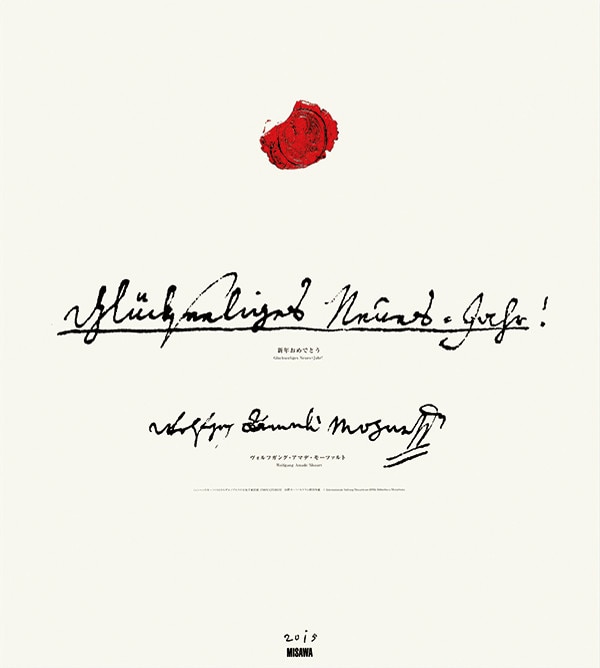 Glückseeliges Neues=Jahr!
新年おめでとう
Glückseeliges Neues=Jahr!
Mozart
ヴォルフガング・アマデ・モーツァルト
Wolfgang Amadé Mozart
2019
MISAWA